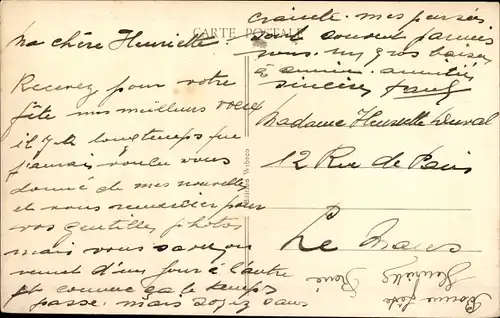 CARTE POSTALE
Ma chère Henriette.
Recevez pour votre
fête mes meilleurs vœux
il y a longtemps que
j'aurais voulu vous
donné de mes nouvelles
et vous remercier pour
vos gentilles photos
mais vous savez on
remet d'un jour à l'autre
et comme ça le temps
passe. mais soyez sans
crainte. mes pensées
sont souvent parmis
vous. un gros baiser
à amitiés
sincères
Madame Henriette Duval
12 Rue de Paris
Le Mans
Bonne fête
Henriette
René
Editions